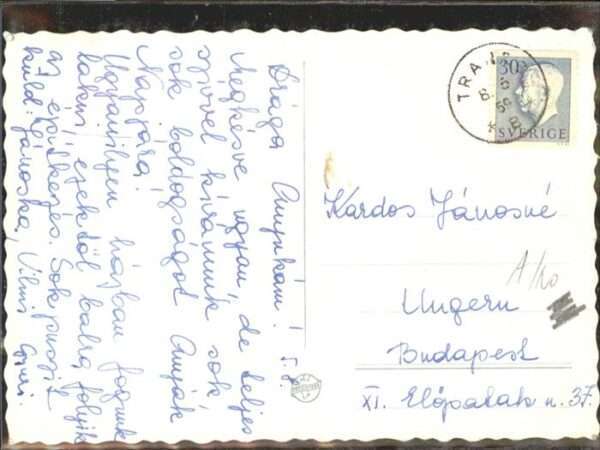 Drága Anyukám! 5. 8.
Megkésve ugyan, de teljes
szívvel kívánunk sok,
sok boldogságot Anyják
Napjára!
Ugyanilyen házban fogunk
lakni, ezektől balra folyik
az építkezés. Sok puszit
küld: Jánoska, Vilmi Gyuri.
30
SVERIGE
TRA
Kardos Jánosné
A/10
Ungern
Budapest
XI. Előpatak u. 37.